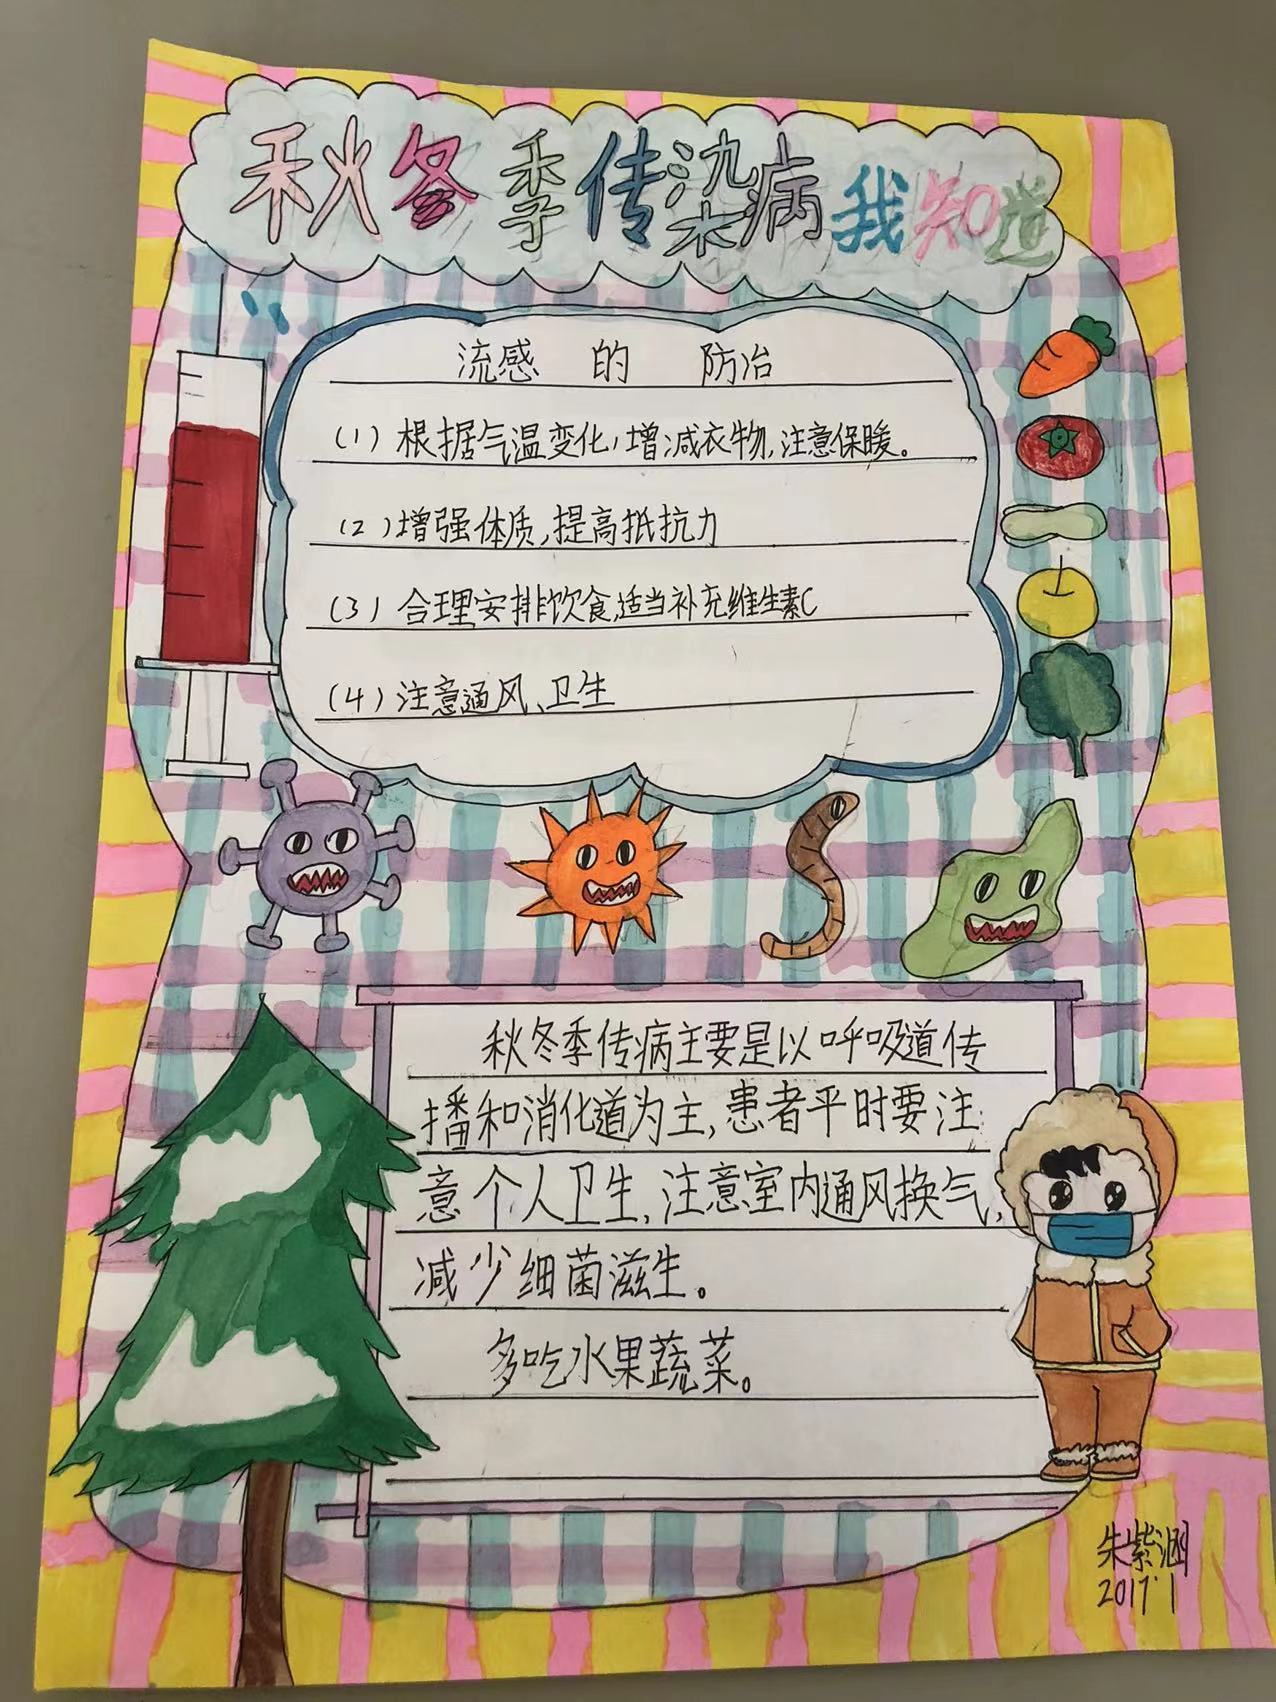 秋冬季传染病我知道
流感 的 防冶
(1)根据气温变化,增减衣物,注意保暖。
(2)增强体质,提高抵抗力
(3)合理安排饮食,适当补充维生素C
(4)注意通风、卫生
秋冬季传病主要是以呼吸道传
播和消化道为主,患者平时要注
意个人卫生,注意室内通风换气,
减少细菌滋生。
多吃水果蔬菜。
朱紫涵
2017.1